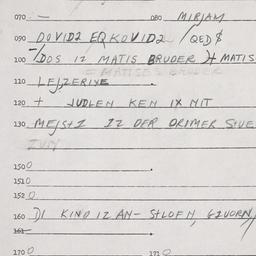 070 - 080 MIRJAM
090 DOVID2 EQKOVID2 /QED$
100 -/DOS IZ MATIS BRUDER )+ MATIS
= MATISES BRUDER
110 LEJZERIYE
120 + JUDLEN KEN IX NIT
130 MEJST1 IZ DER ORIMER STUE
ZUN
150 0
151 0
152 0
160 )1 KIND IZ AN- STLOFN, GZUORN,
161
170 0 171 0